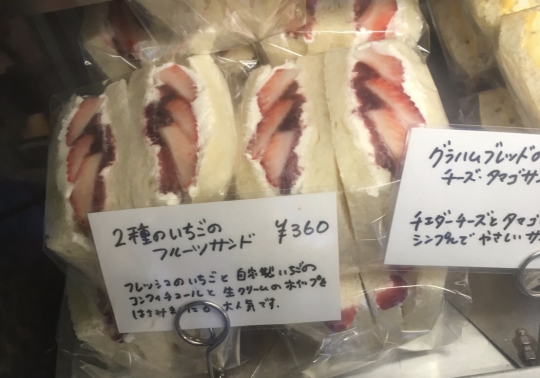 2種のいちごの
フルーツサンド ¥360
フレッシュのいちごと 自家製いちごの
コンフィチュールと生クリームのホイップを
はさみました。大人気です。
グラハムブレッドの
チーズ・タマゴサン
チェダーチーズとタマゴ
シンプルでやさしいサン